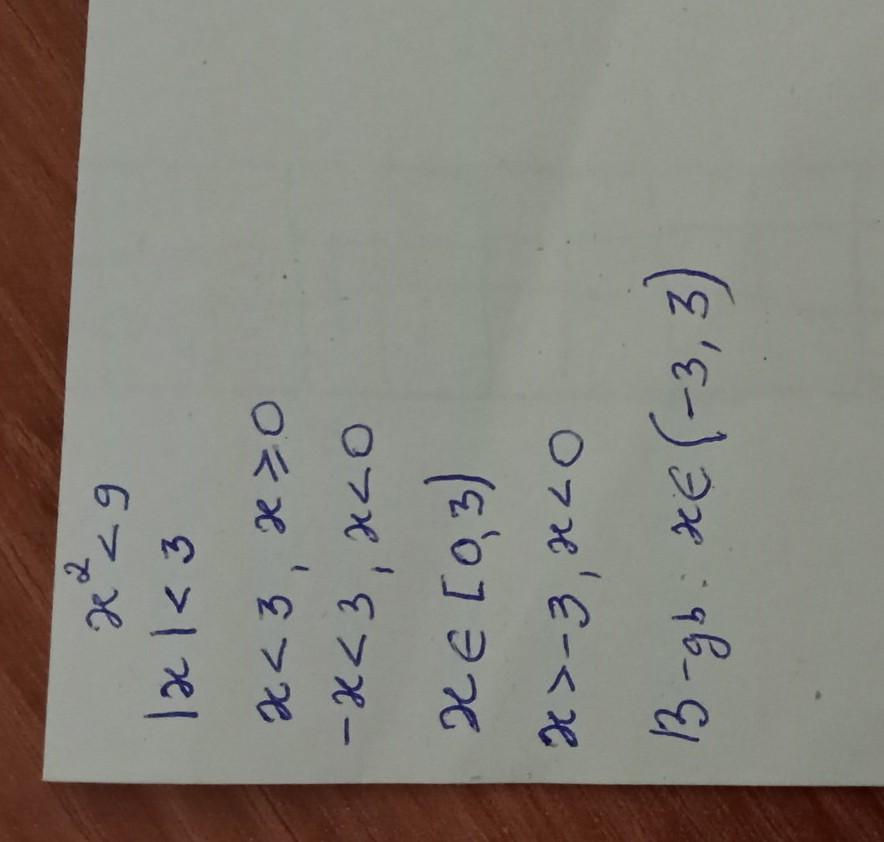 x² < 9
|x| < 3
x < 3, x ⩾ 0
-x < 3, x < 0
x ∈ [0, 3)
x > -3, x < 0
В-дь: x ∈ (-3, 3)